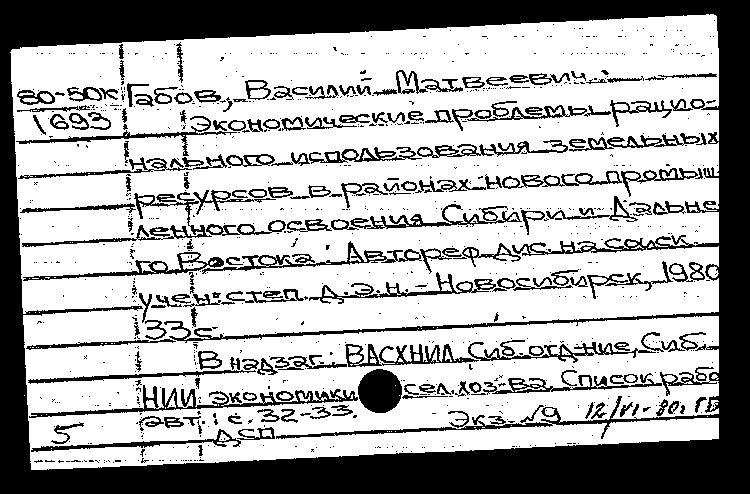 80-50к Габов, Василий Матвеевич.
1693 Экономические проблемы рацио-
нального использования земельных
ресурсов в районах нового промыш
ленного освоения Сибири и Дальне
го Востока: Автореф. дис. на соиск.
учен. степ. д.э.н. - Новосибирск, 1980
33с.
В надзаг.: ВАСХНИЛ. Сиб. отд-ние, Сиб.
НИИ экономики сел. хоз-ва. Список рабо
авт.: с. 32-33.
Экз. №9 12/VI-80г.
5 ДСП